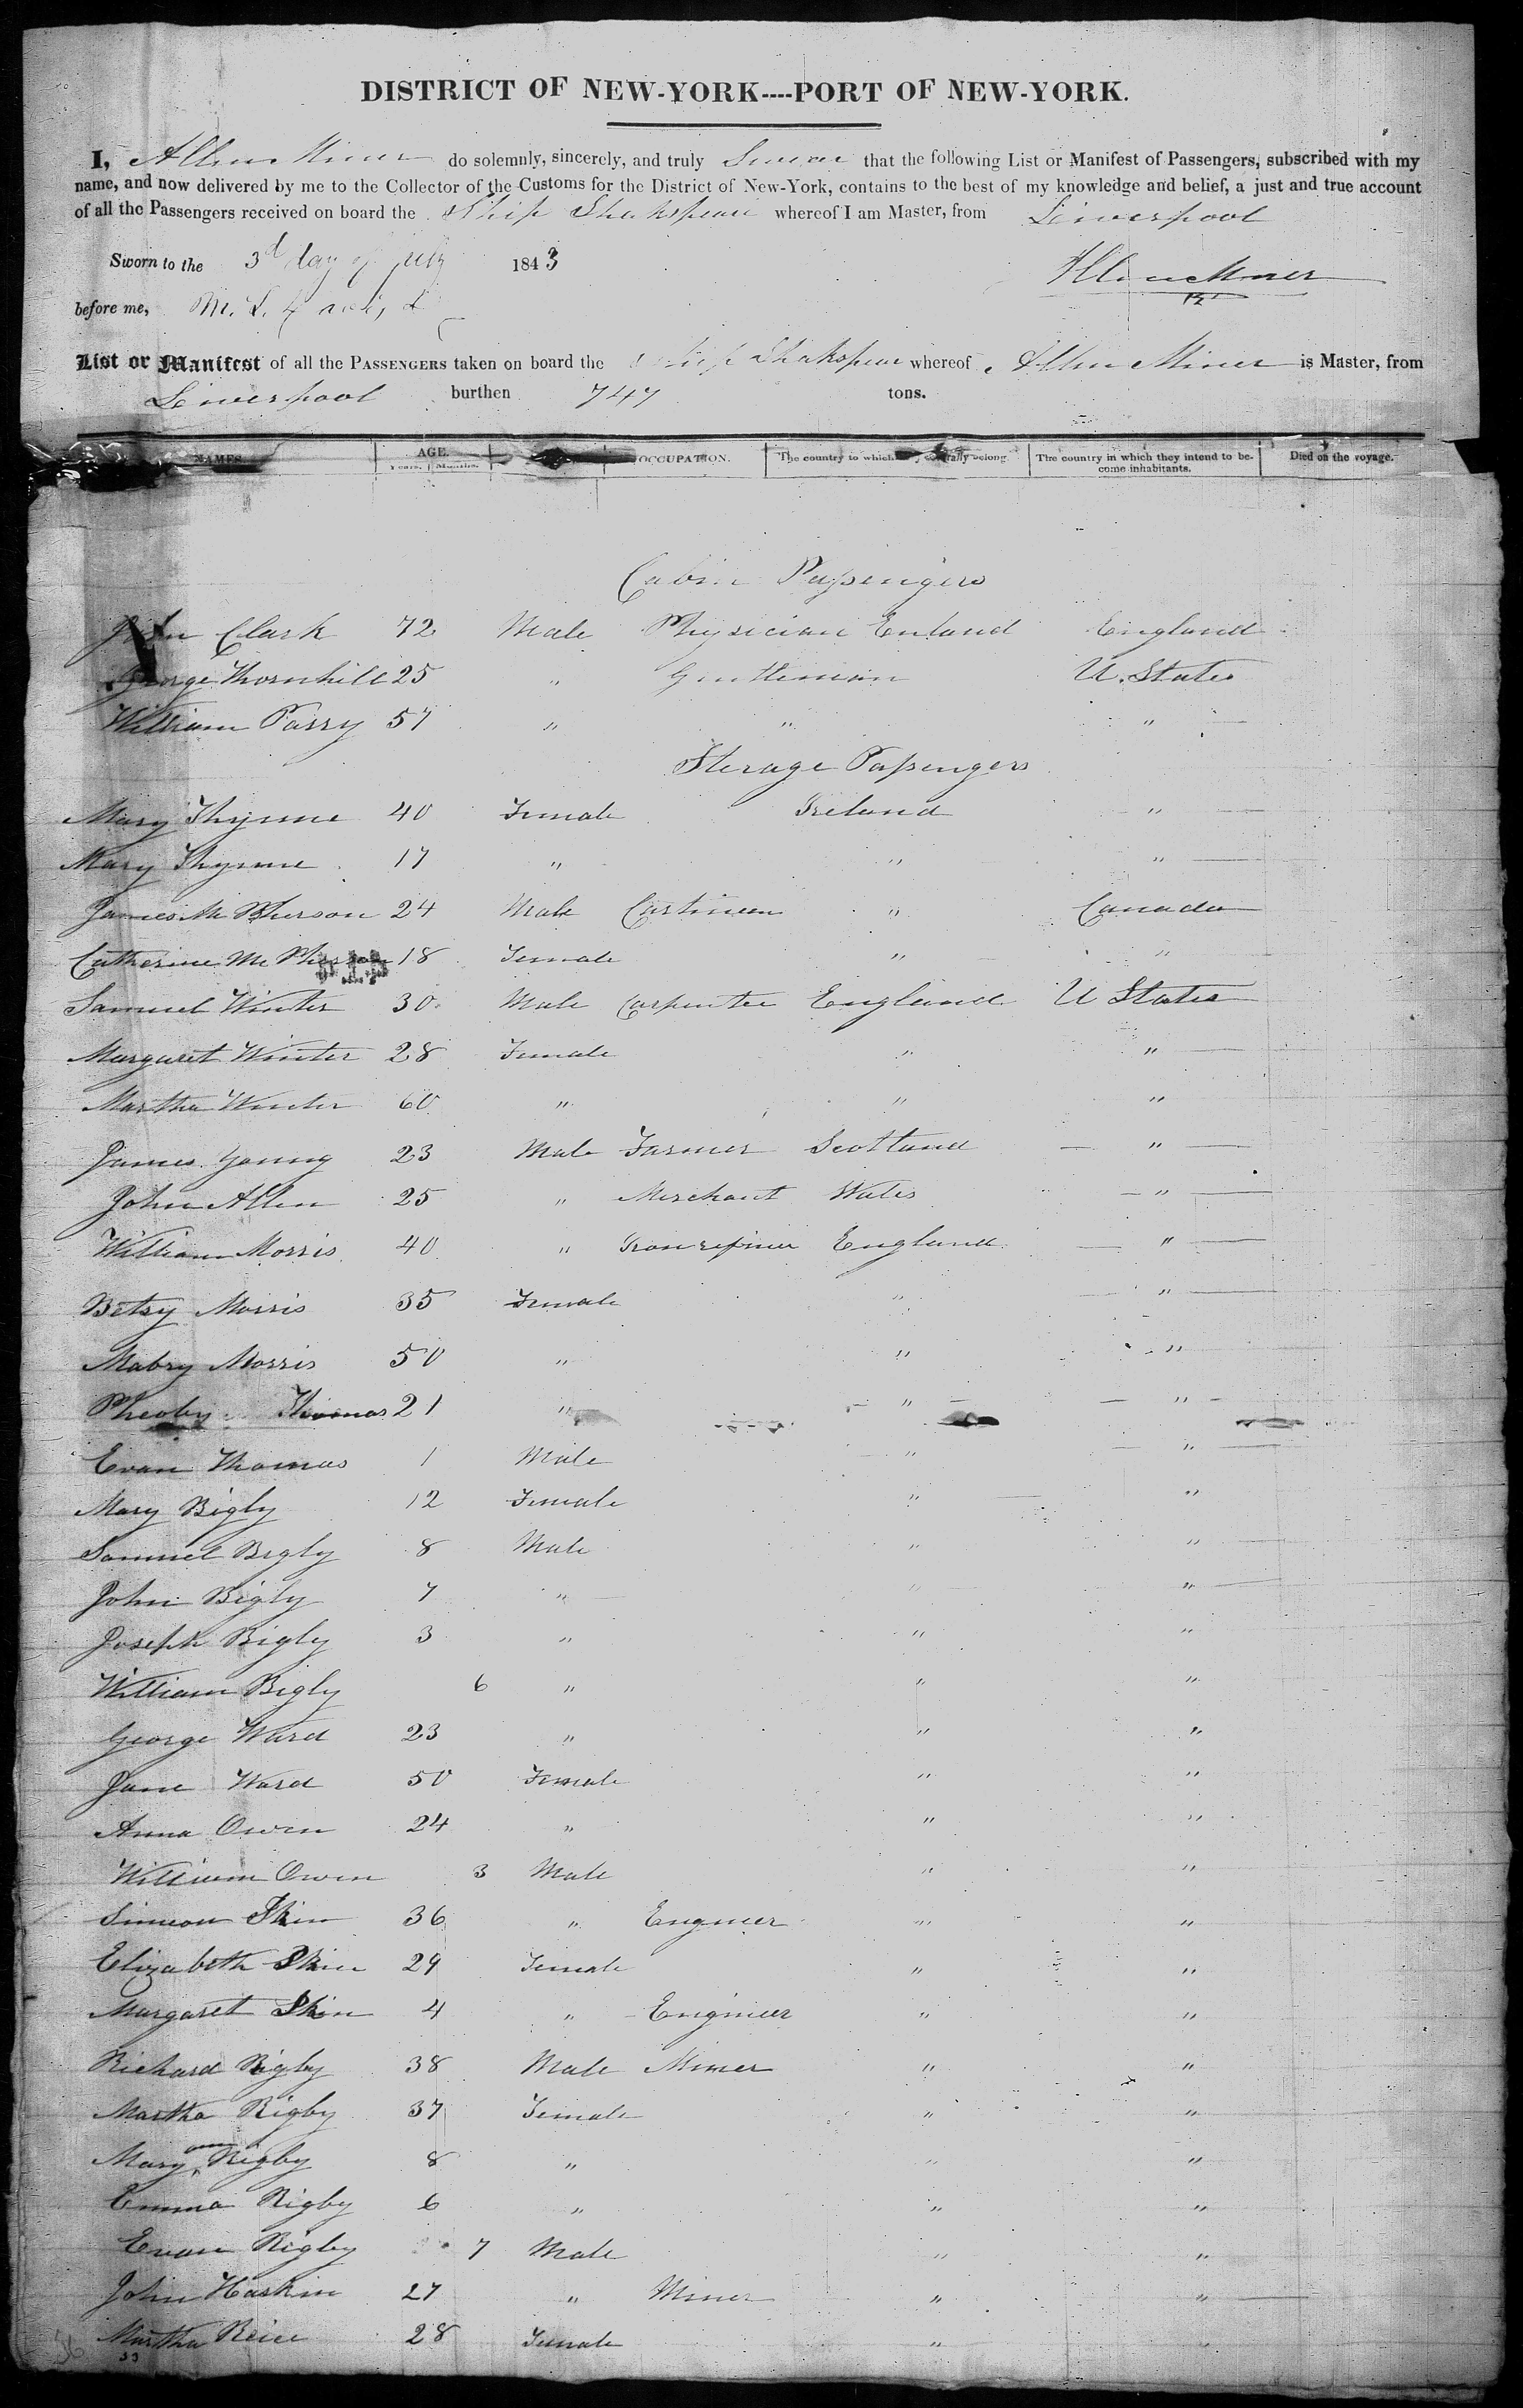 DISTRICT OF NEW-YORK----PORT OF NEW-YORK.
I, Allen Miner do solemnly, sincerely, and truly Swear that the following List or Manifest of Passengers, subscribed with my
name, and now delivered by me to the Collector of the Customs for the District of New-York, contains to the best of my knowledge and belief, a just and true account
of all the Passengers received on board the Ship Shakspeare whereof I am Master, from Liverpool
Sworn to the 3d day of July 1843
Allen Miner
before me,
List or Manifest of all the PASSENGERS taken on board the Ship Shakspear whereof Allen Miner is Master, from
Liverpool burthen 747 tons.
NAMES AGE. OCCUPATION. The country to which belong. The country in which they intend to be- Died on the voyage.
Years. Months. come inhabitants.
Cabin Passengers
John Clark 72 Male Physician Enland England
George Thornhill 25 " Gentleman U. States
William Parry 57 " " "
Sterage Passengers
Mary Thynne 40 Female Ireland "
Mary Thynne 17 " " "
James Mc Pherson 24 Male " Canada
Catherine Mc Pherson 18 Female " "
Samuel Winter 30 Male Carpenter England U States
Margaret Winter 28 Female " "
Martha Winter 60 " " "
James Young 23 Male Farmer Scotland "
John Allen 25 " Merchant Wales "
William Morris 40 " Iron refiner England "
Betsy Morris 35 Female " "
Mabry Morris 50 " " "
Pheoby Thomas 21 " " "
Evan Thomas 1 Male " "
Mary Bigly 12 Female " "
Samuel Bigly 8 Male " "
John Bigly 7 " " "
Joseph Bigly 3 " " "
William Bigly 6 " " "
George Ward 23 " " "
Jane Ward 50 Female " "
Anna Owen 24 " " "
William Owen 3 Male " "
Simeon Skin 36 " Engineer " "
Elizabeth Skin 29 Female " "
Margaret Skin 4 " Engineer " "
Richard Rigby 38 Male Miner " "
Martha Rigby 37 Female " "
Mary ann Rigby 8 " " "
Emma Rigby 6 " " "
Evan Rigby 7 Male " "
John Haskin 27 " Miner " "
Martha Reice 28 Female " "
36 33